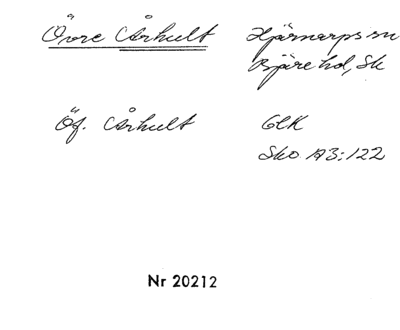 Övre Århult Hjärnarps sn
Bjäre hd, Sk
Öf. Århult GK
Sko A3:122
Nr 20212